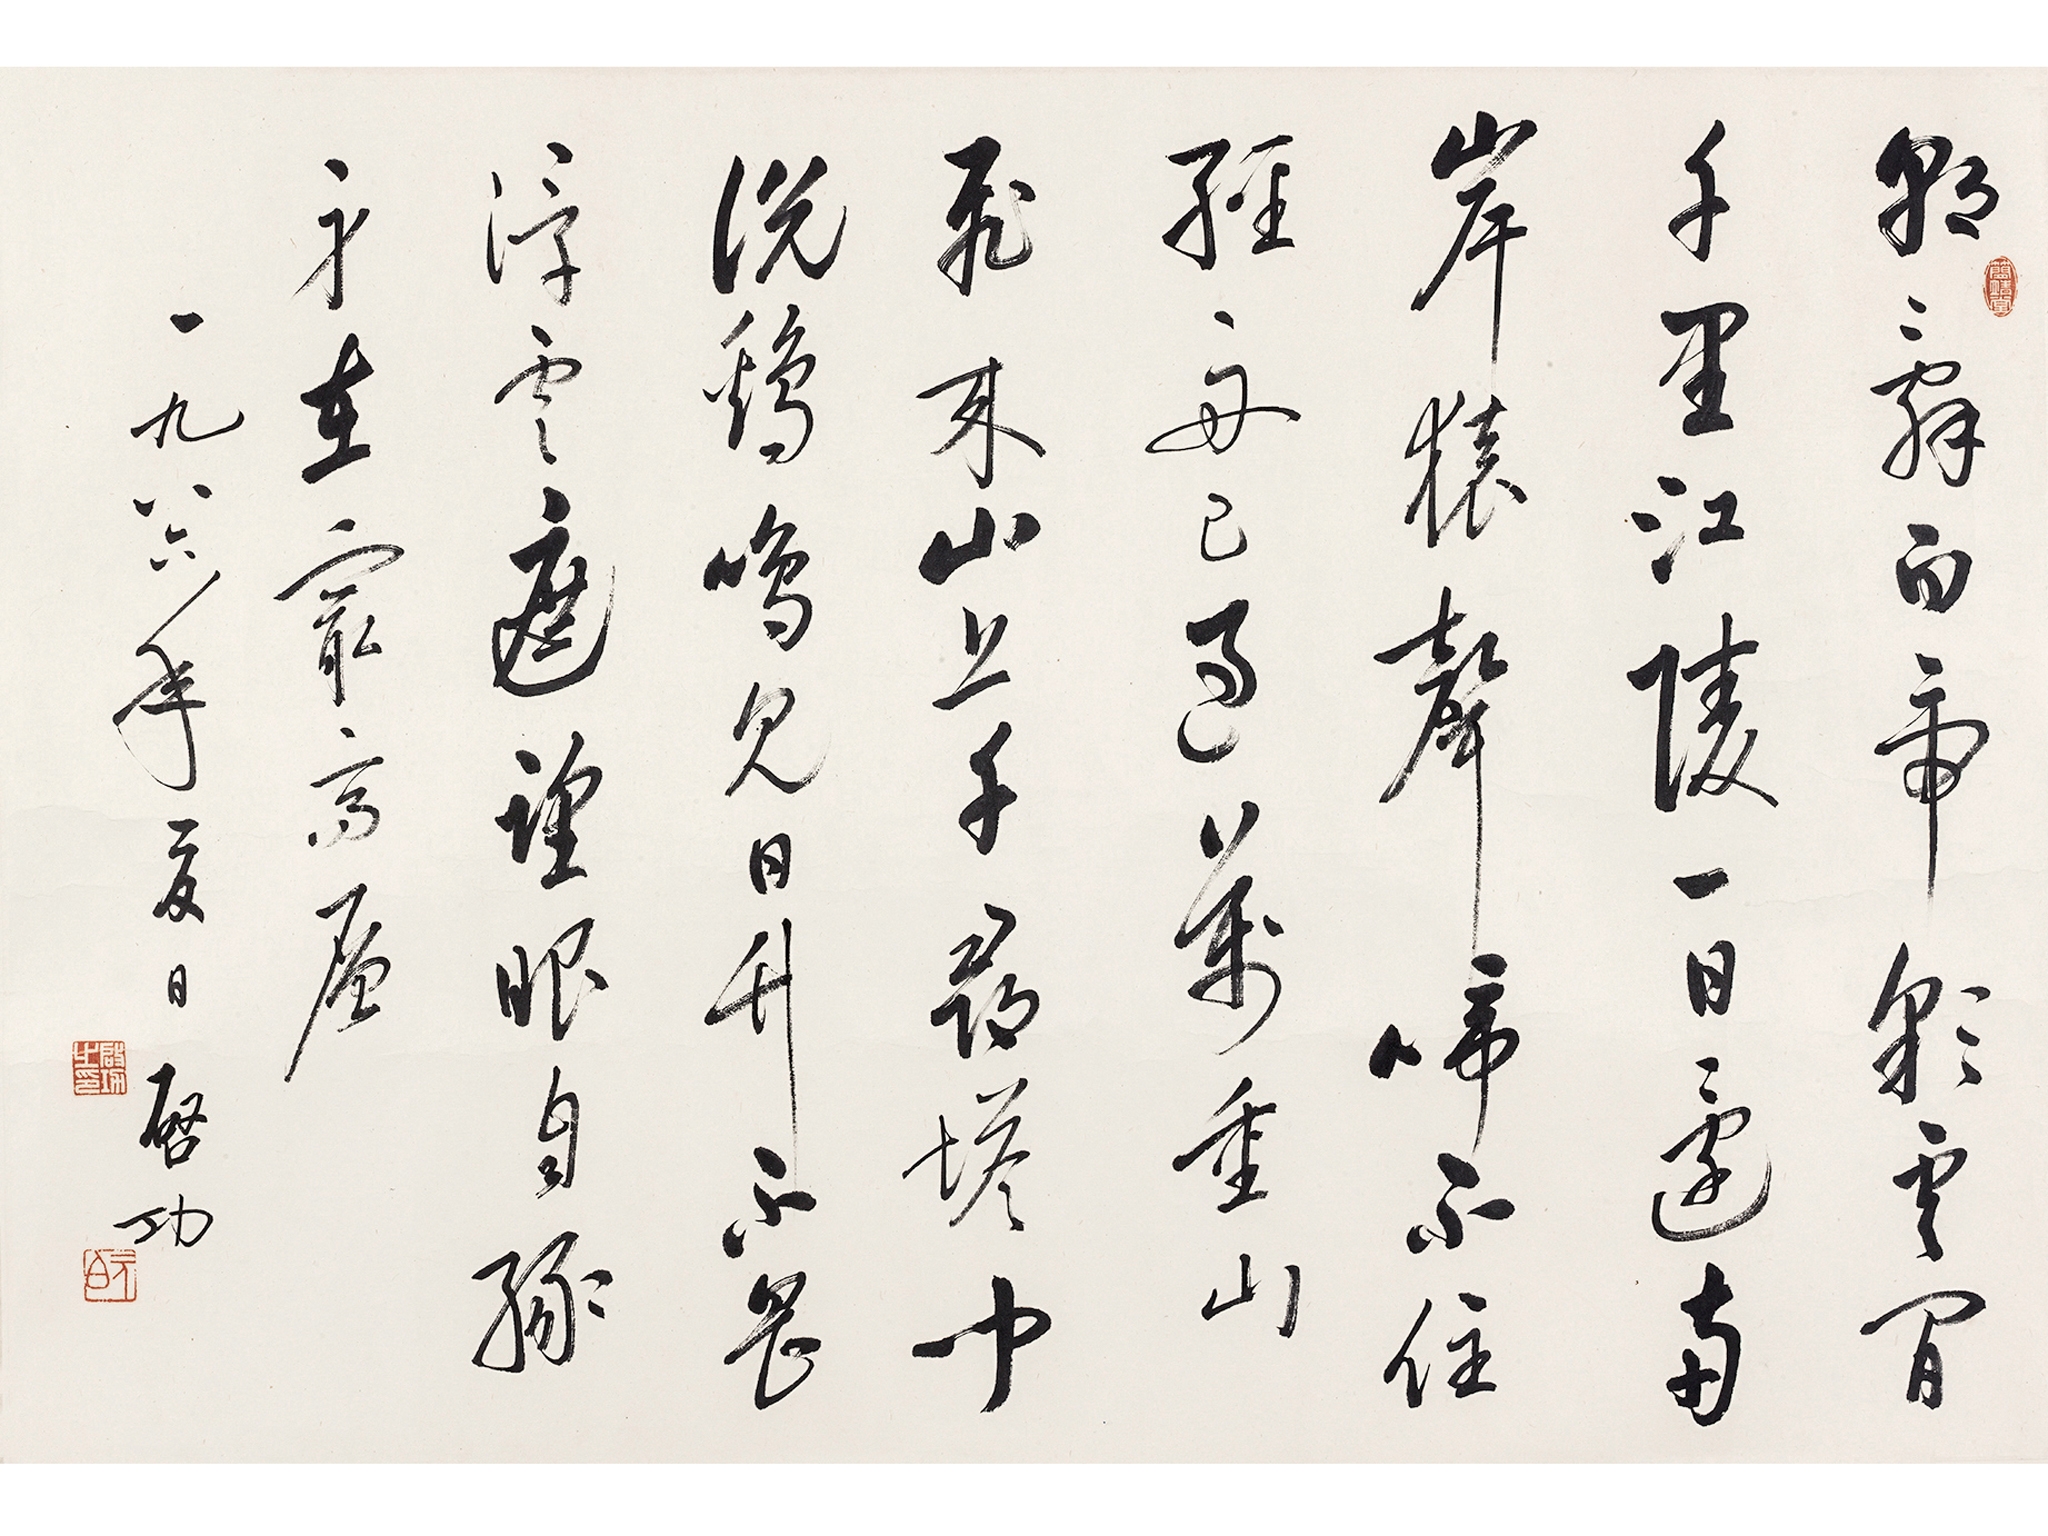 朝辭白帝彩雲間
千里江陵一日還兩
岸猿聲啼不住
輕舟已過萬重山
飛來山上千尋塔聞
說雞鳴見日升不畏
浮雲遮望眼自緣
身在最高層
一九八六年夏日 啓功
啟功之印
元白